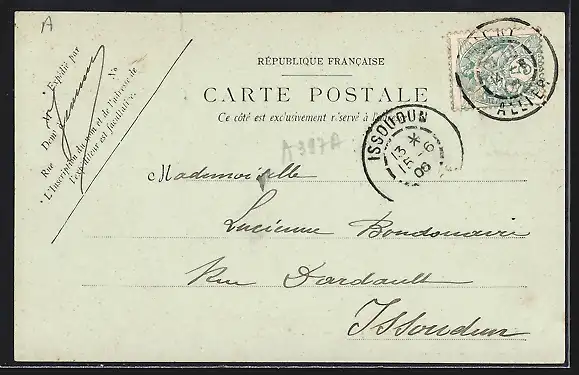 A
Expédié par
Demt
Rue No
L'Inscription du nom et de l'adresse de
l'expéditeur est facultative.
RÉPUBLIQUE FRANÇAISE
CARTE POSTALE
Ce côté est exclusivement réservé à l'adresse
ALLIER
ISSOUDUN
13
15 6
06
A387A
Mademoiselle
Lucienne Bondonaire
Rue Dardault
Issoudun